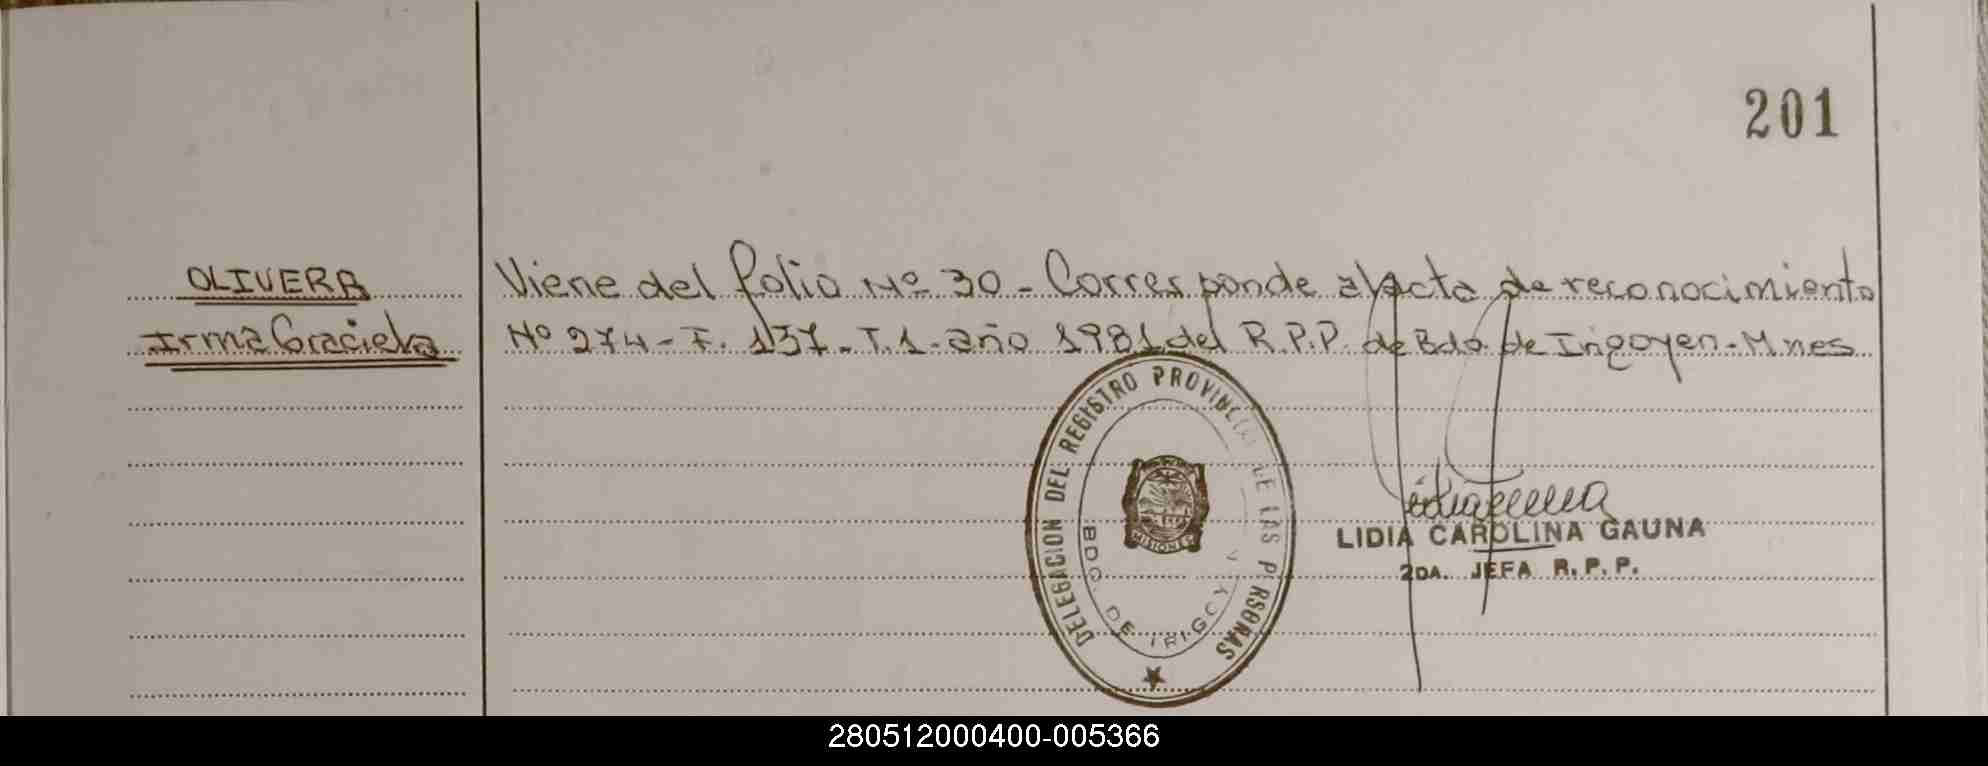 201
OLIVERA
Irma Graciela
Viene del folio Nº 30 - Corresponde al acta de reconocimiento
Nº 274 - F. 137 - T. 1 - año 1981 del R.P.P. de Bdo. de Irigoyen - Mnes
DELEGACION DEL REGISTRO PROVINCIAL DE LAS PERSONAS
BDO. DE IRIGOY
MISIONES
LIDIA CAROLINA GAUNA
2DA. JEFA R.P.P.
280512000400-005366